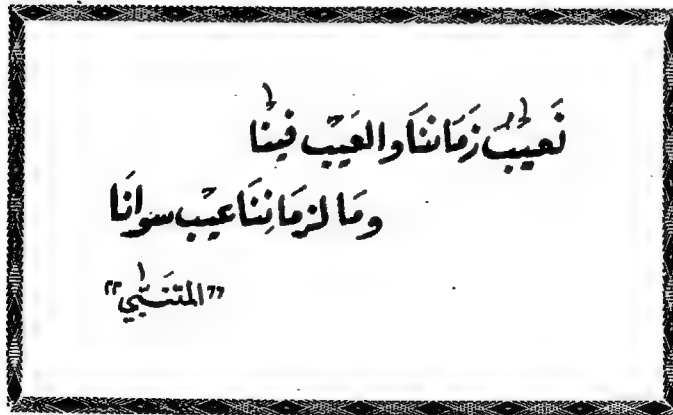 نَعيبُ زَمَاننَا والعَيْب فينَا
ومَا لزمَانِنَا عيْب سوانَا
"المتنَبّي"